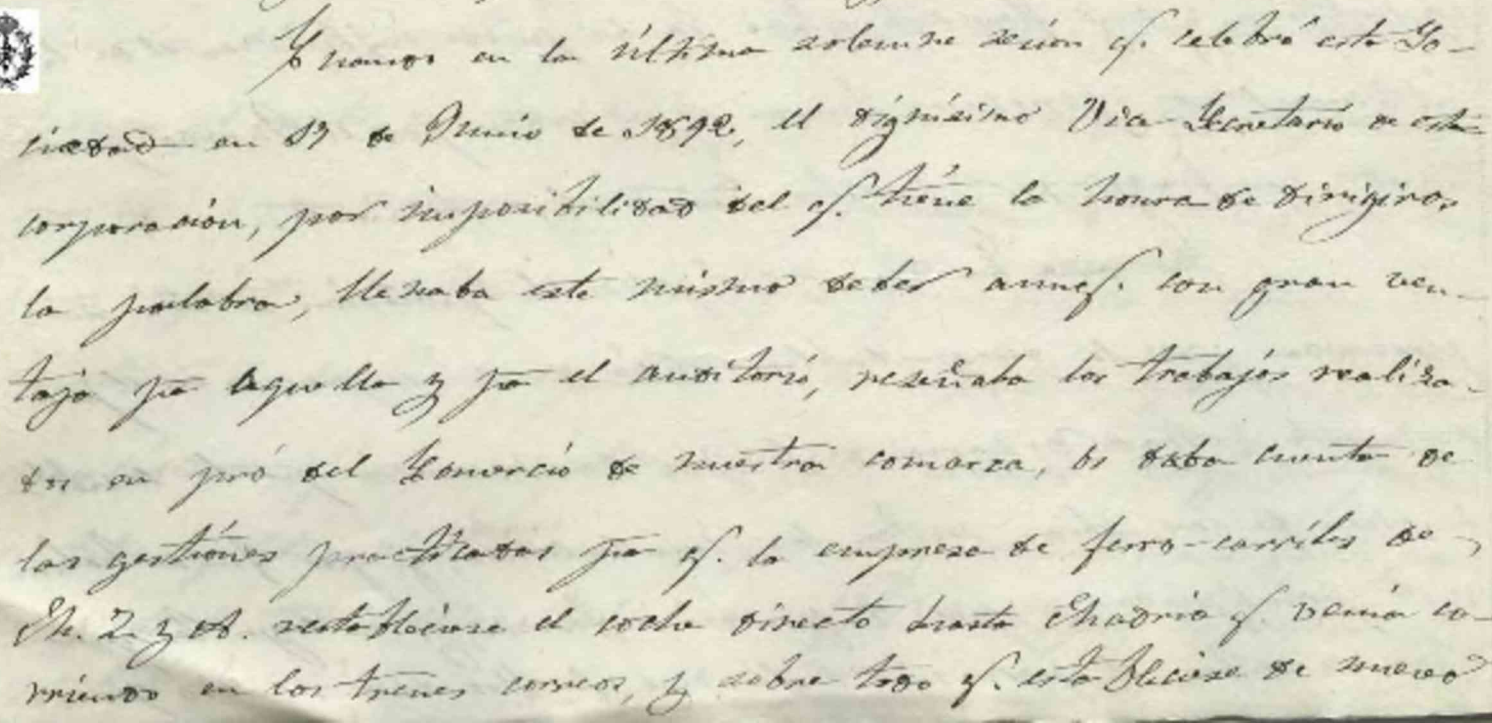 Cuando en la última solemne sesion q. celebró esta So-
ciedad en 19 de Junio de 1892, el dignísimo Vice-Secretario de esta
corporación, por imposibilidad del q. tiene la honra de dirigiros
la palabra, llenaba este mismo deber aunq. con gran ven-
taja pa aquella y pa el auditorio, reseñaba los trabajos realiza-
dos en pró del Comercio de nuestra comarca, os daba cuenta de
las gestiones practicadas pa q. la empresa de ferro-carriles de
M. Z. y A. restableciese el coche directo hasta Madrid q. venia co-
rriendo en los trenes correos, y sobre todo q. estableciese de nuevo